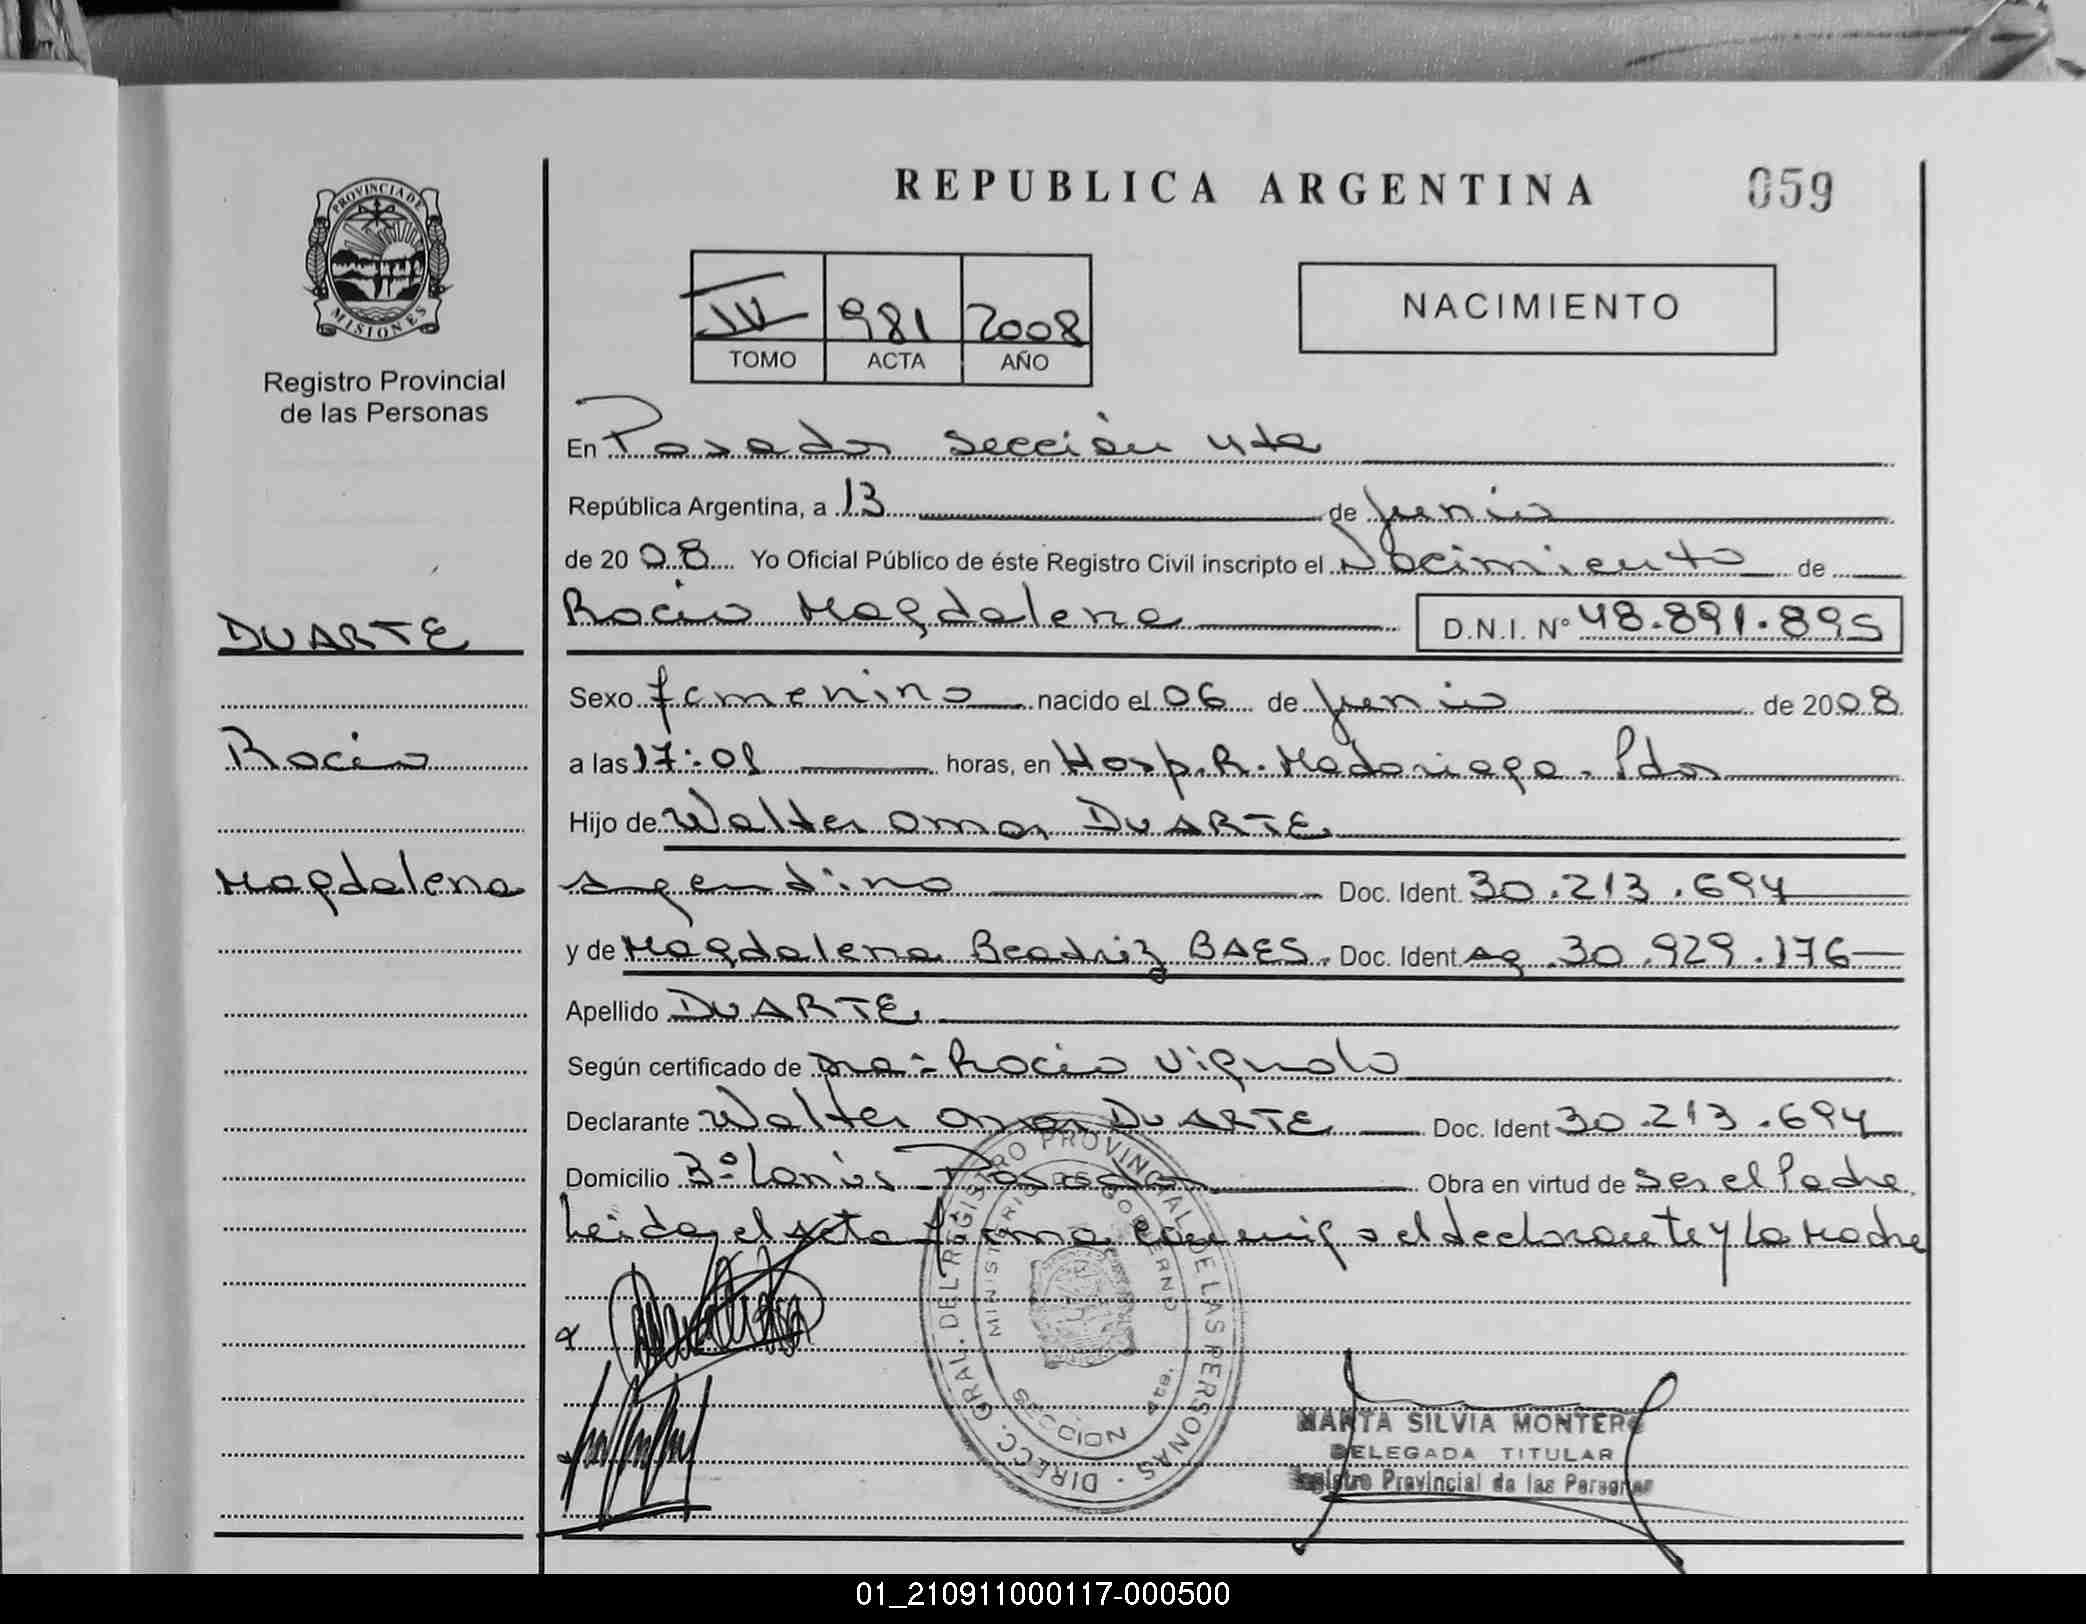 REPUBLICA ARGENTINA
059
PROVINCIA DE
MISIONES
Registro Provincial
de las Personas
IV 981 2008
TOMO ACTA AÑO
NACIMIENTO
En Posadas sección 4ta
República Argentina, a 13 de Junio
de 2008 Yo Oficial Público de éste Registro Civil inscripto el Nacimiento de
DUARTE
Rocio Magdalena D.N.I. Nº 48.891.895
Sexo femenino nacido el 06 de Junio de 2008
Rocio
a las 17:01 horas, en Hosp. R. Madariaga. Pdas
Hijo de Walter Omar DUARTE
Magdalena
Argentino Doc. Ident. 30.213.694
y de Magdalena Beatriz BAES. Doc. Ident Ag 30.929.176
Apellido DUARTE
Según certificado de Dra: Rocio Vignolo
Declarante Walter Omar DUARTE Doc. Ident 30.213.694
Domicilio Bº Lanús Posadas Obra en virtud de ser el Padre.
Leida el Acta firma conmigo el declarante y la Madre
DIRECC. GRAL. DEL REGISTRO PROVINCIAL DE LAS PERSONAS
MINISTERIO DE GOBIERNO
SECCION 4ta.
MARTA SILVIA MONTERO
DELEGADA TITULAR
Registro Provincial de las Personas
01_210911000117-000500